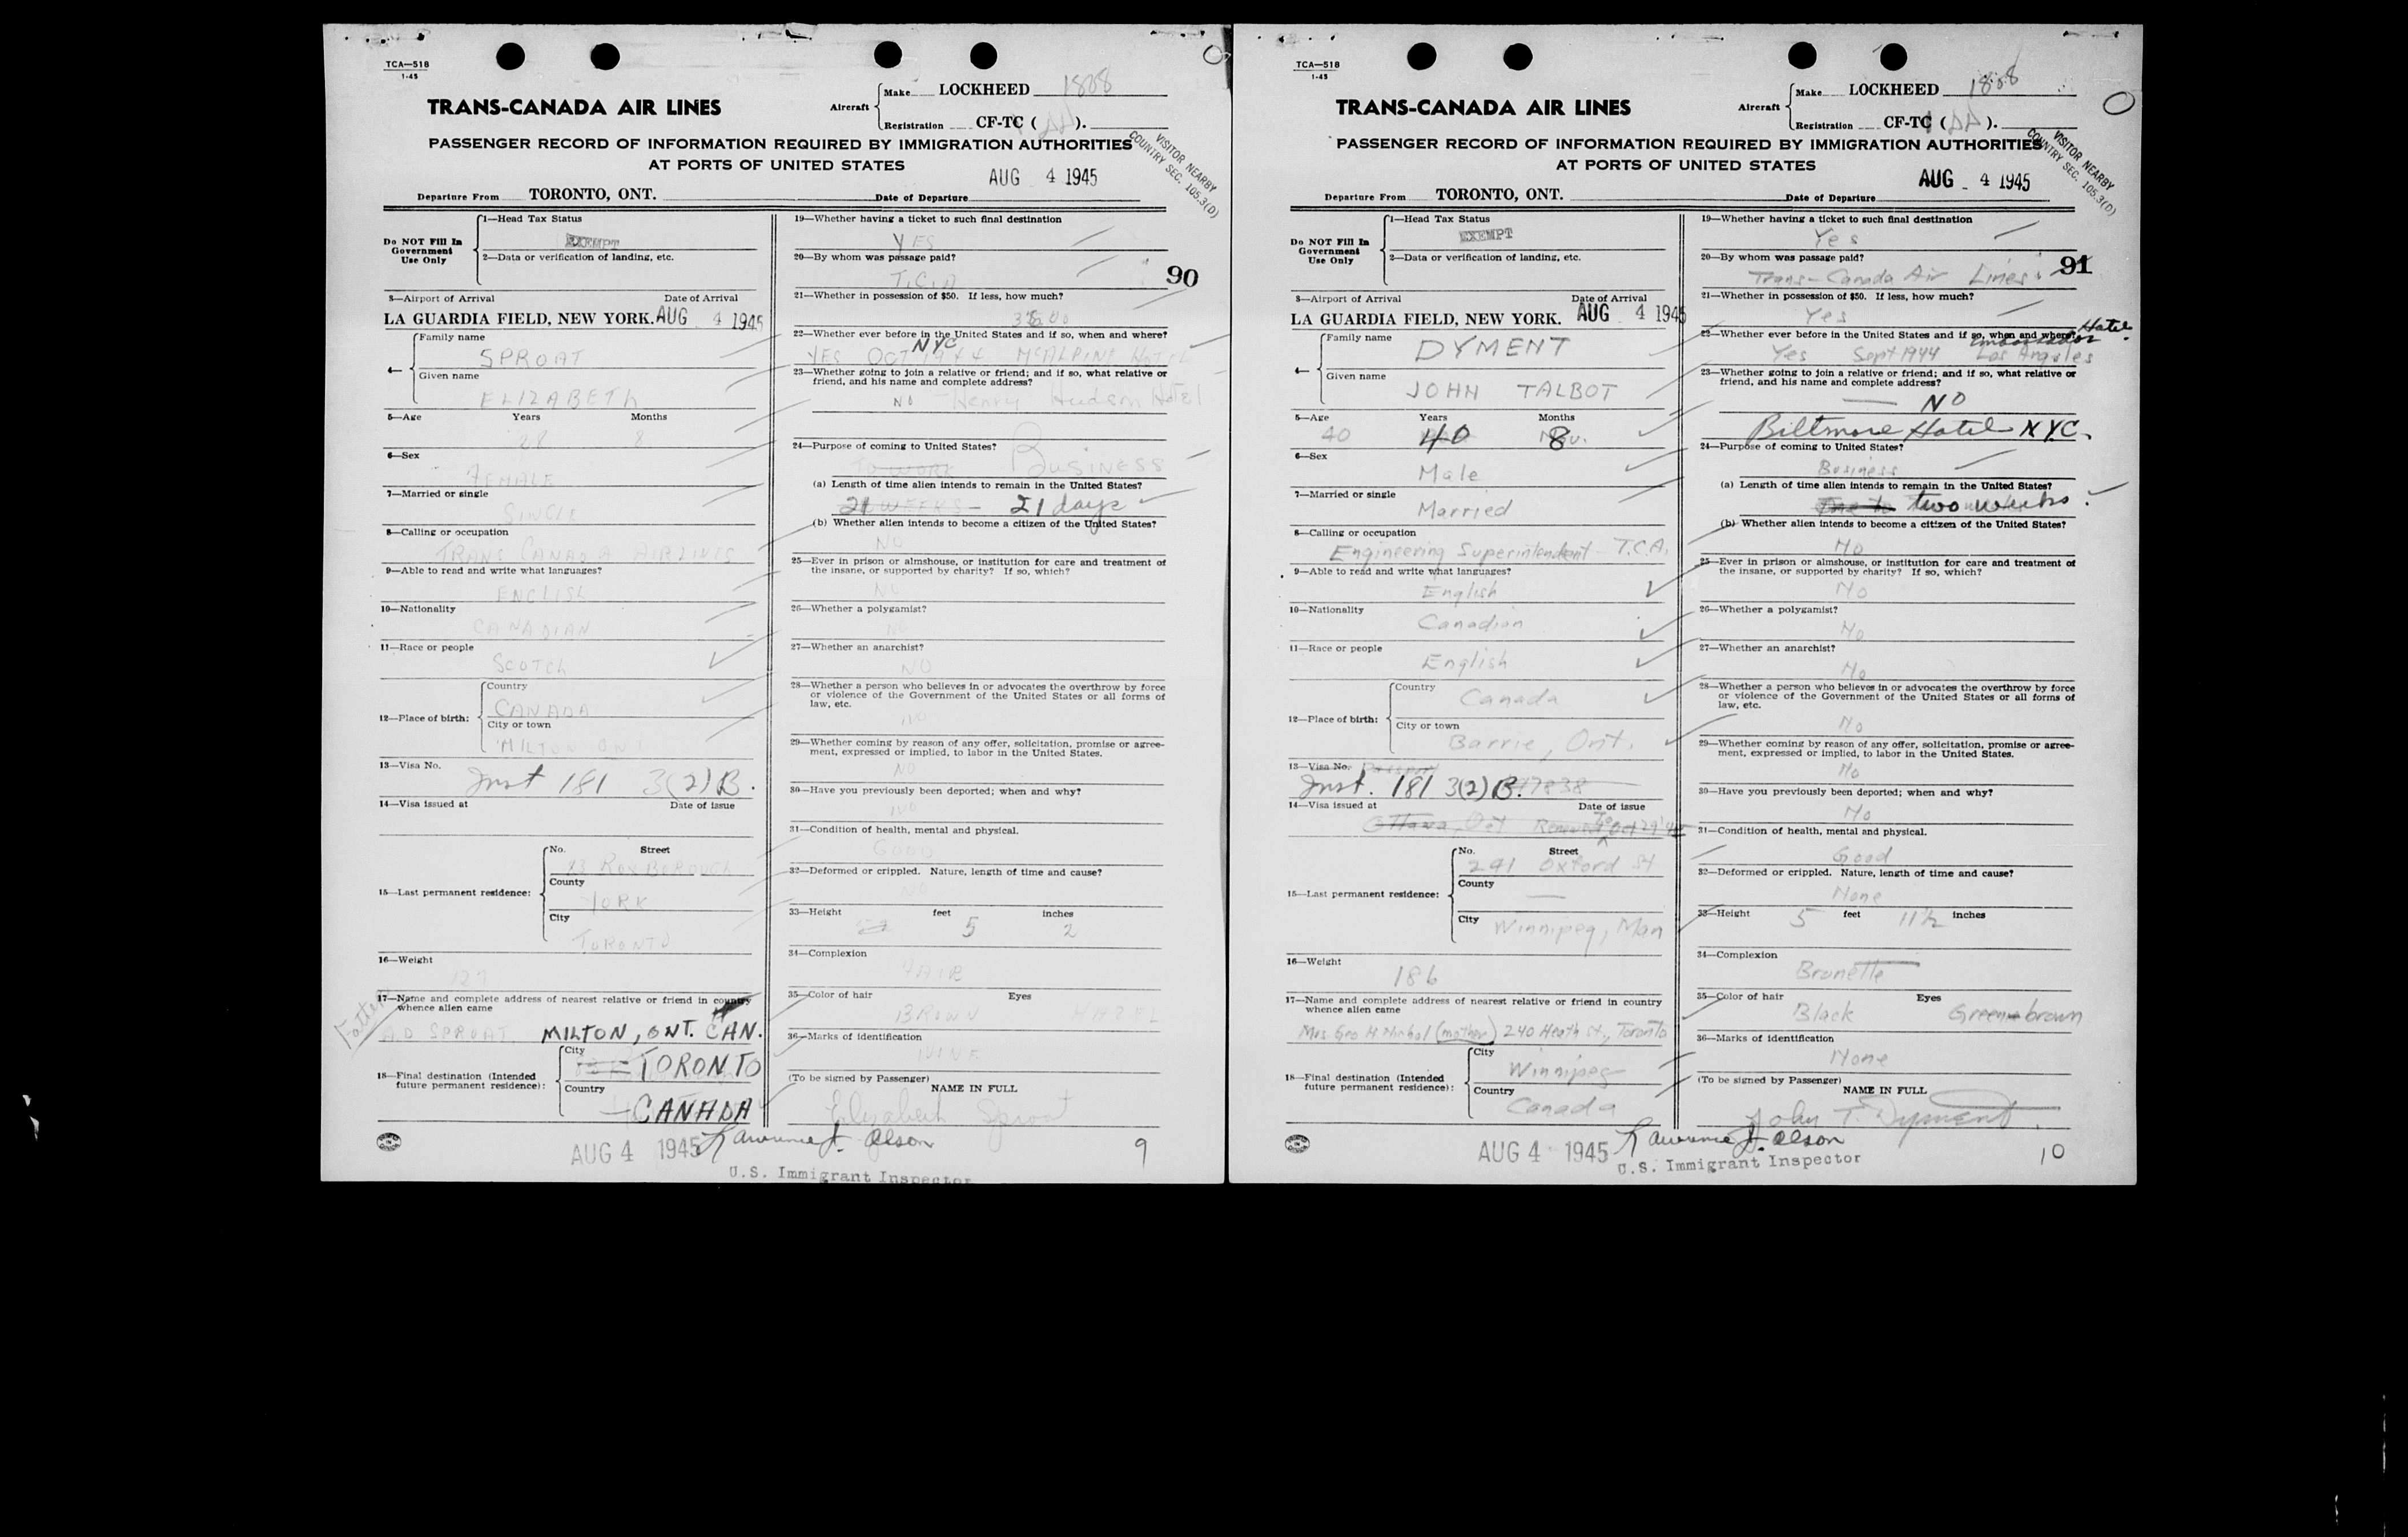 TCA—518
1-45
TRANS-CANADA AIR LINES
Aircraft
Make LOCKHEED 1808
Registration CF-TC ( ).
PASSENGER RECORD OF INFORMATION REQUIRED BY IMMIGRATION AUTHORITIES
AT PORTS OF UNITED STATES
VISITOR NEARBY
COUNTRY SEC. 105.3(D)
AUG 4 1945
Departure From TORONTO, ONT. Date of Departure
Do NOT Fill In
Government
Use Only
1—Head Tax Status
EXEMPT
2—Data or verification of landing, etc.
3—Airport of Arrival Date of Arrival
LA GUARDIA FIELD, NEW YORK. AUG 4 1945
4—
Family name
SPROAT
Given name
ELIZABETH
5—Age Years Months
28 8
6—Sex
FEMALE
7—Married or single
SINGLE
8—Calling or occupation
TRANS CANADA AIRLINES
9—Able to read and write what languages?
ENGLISH
10—Nationality
CANADIAN
11—Race or people
SCOTCH
12—Place of birth:
Country
CANADA
City or town
MILTON ONT
13—Visa No.
Inst 181 3(2)B.
14—Visa issued at Date of issue
15—Last permanent residence:
No. Street
93 ROXBOROUGH
County
YORK
City
TORONTO
16—Weight
127
17—Name and complete address of nearest relative or friend in country
whence alien came
Father
A.D SPROAT MILTON, ONT. CAN.
18—Final destination (Intended
future permanent residence):
City
TORONTO
Country
CANADA
19—Whether having a ticket to such final destination
YES
20—By whom was passage paid?
T.C.A
90
21—Whether in possession of $50. If less, how much?
22—Whether ever before in the United States and if so, when and where?
NYC
YES OCT 1944 McALPINE HOTEL
23—Whether going to join a relative or friend; and if so, what relative or
friend, and his name and complete address?
NO Henry Hudson Hotel
24—Purpose of coming to United States?
TO WORK BUSINESS
(a) Length of time alien intends to remain in the United States?
21 WEEKS — 21 days
(b) Whether alien intends to become a citizen of the United States?
NO
25—Ever in prison or almshouse, or institution for care and treatment of
the insane, or supported by charity? If so, which?
NO
26—Whether a polygamist?
NO
27—Whether an anarchist?
NO
28—Whether a person who believes in or advocates the overthrow by force
or violence of the Government of the United States or all forms of
law, etc.
NO
29—Whether coming by reason of any offer, solicitation, promise or agree-
ment, expressed or implied, to labor in the United States.
NO
30—Have you previously been deported; when and why?
NO
31—Condition of health, mental and physical.
GOOD
32—Deformed or crippled. Nature, length of time and cause?
NO
33—Height feet inches
5 2
34—Complexion
FAIR
35—Color of hair Eyes
BROWN HAZEL
36—Marks of identification
NONE
(To be signed by Passenger)
NAME IN FULL
Elizabeth Sproat
AUG 4 1945 Lawrence J. Olson
U.S. Immigrant Inspector
9
TCA—518
1-45
TRANS-CANADA AIR LINES
Aircraft
Make LOCKHEED 1808
Registration CF-TC ( ).
PASSENGER RECORD OF INFORMATION REQUIRED BY IMMIGRATION AUTHORITIES
AT PORTS OF UNITED STATES
VISITOR NEARBY
COUNTRY SEC. 105.3(D)
AUG 4 1945
Departure From TORONTO, ONT. Date of Departure
Do NOT Fill In
Government
Use Only
1—Head Tax Status
EXEMPT
2—Data or verification of landing, etc.
3—Airport of Arrival Date of Arrival
LA GUARDIA FIELD, NEW YORK. AUG 4 1945
4—
Family name
DYMENT
Given name
JOHN TALBOT
5—Age Years Months
40 40 8
6—Sex
Male
7—Married or single
Married
8—Calling or occupation
Engineering Superintendent - T.C.A.
9—Able to read and write what languages?
English
10—Nationality
Canadian
11—Race or people
English
12—Place of birth:
Country
Canada
City or town
Barrie, Ont.
13—Visa No. Passport
Inst. 181 3(2)B.
14—Visa issued at Date of issue
Ottawa, Ont Renewed to Oct 29
15—Last permanent residence:
No. Street
241 Oxford St
County
—
City
Winnipeg, Man
16—Weight
186
17—Name and complete address of nearest relative or friend in country
whence alien came
Mrs. Geo H (mother) 240 Heath St., Toronto
18—Final destination (Intended
future permanent residence):
City
Winnipeg
Country
Canada
19—Whether having a ticket to such final destination
Yes
20—By whom was passage paid?
Trans-Canada Air Lines
91
21—Whether in possession of $50. If less, how much?
Yes
22—Whether ever before in the United States and if so, when and where?
Ambassador Hotel
Yes Sept 1944 Los Angeles
23—Whether going to join a relative or friend; and if so, what relative or
friend, and his name and complete address?
— NO
Biltmore Hotel NYC.
24—Purpose of coming to United States?
Business
(a) Length of time alien intends to remain in the United States?
two weeks
(b) Whether alien intends to become a citizen of the United States?
No
25—Ever in prison or almshouse, or institution for care and treatment of
the insane, or supported by charity? If so, which?
No
26—Whether a polygamist?
No
27—Whether an anarchist?
No
28—Whether a person who believes in or advocates the overthrow by force
or violence of the Government of the United States or all forms of
law, etc.
No
29—Whether coming by reason of any offer, solicitation, promise or agree-
ment, expressed or implied, to labor in the United States.
No
30—Have you previously been deported; when and why?
No
31—Condition of health, mental and physical.
Good
32—Deformed or crippled. Nature, length of time and cause?
None
33—Height 5 feet 11½ inches
34—Complexion
Brunette
35—Color of hair Eyes
Black Green-brown
36—Marks of identification
None
(To be signed by Passenger)
NAME IN FULL
John T. Dyment
AUG 4 1945 Lawrence J. Olson
U.S. Immigrant Inspector
10